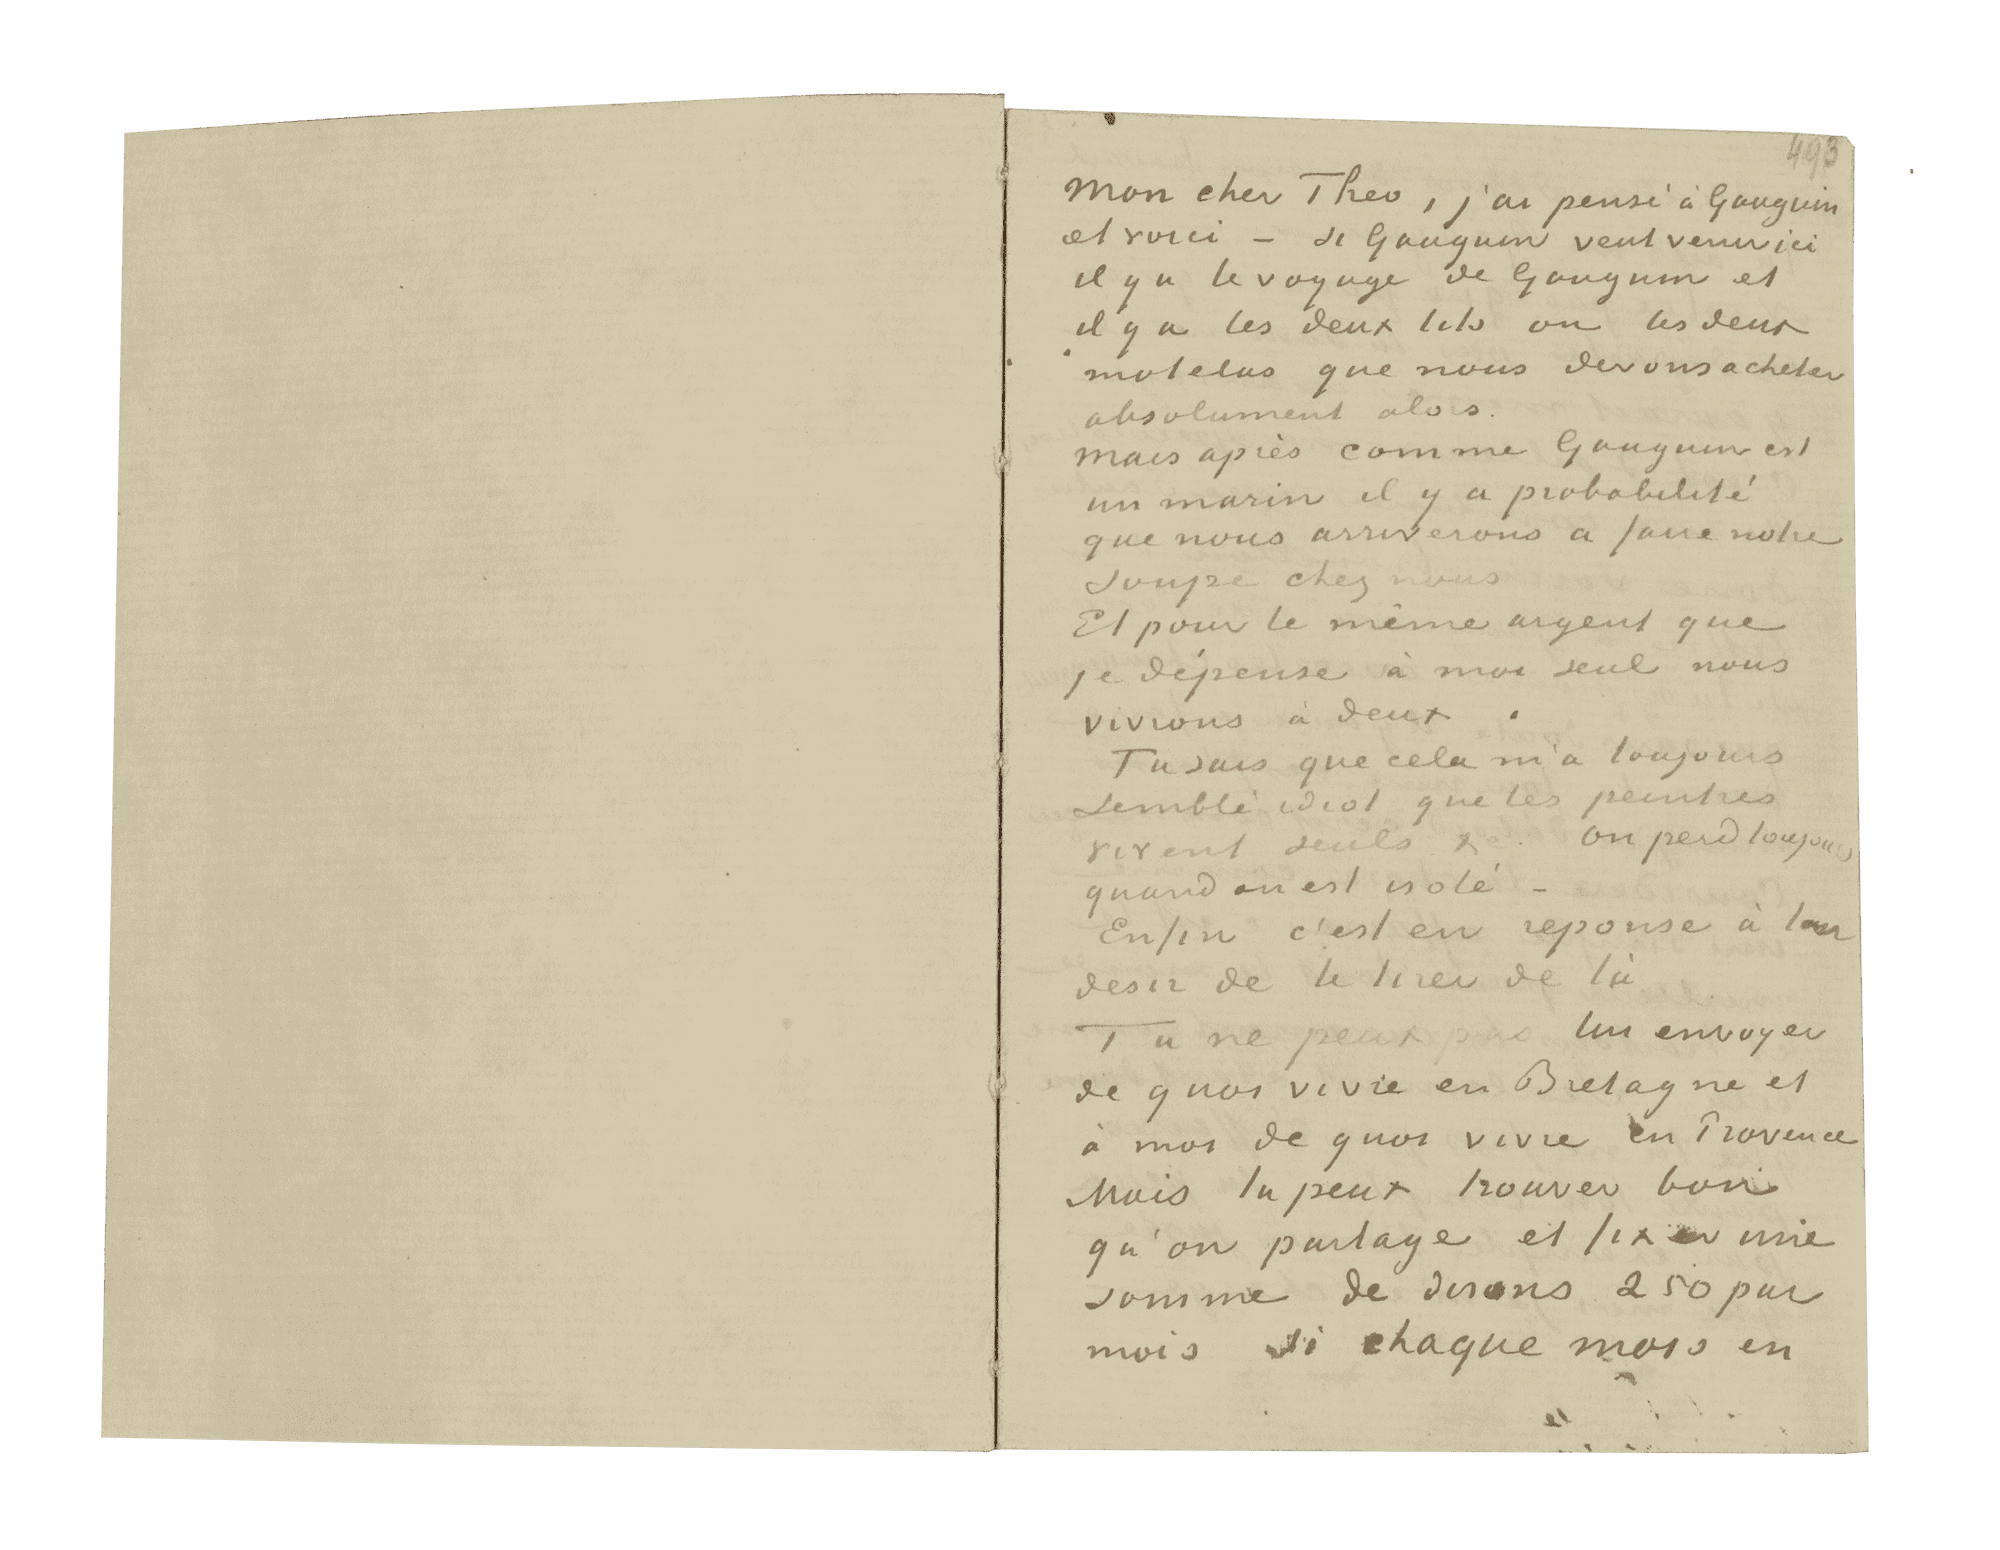 493
Mon cher Theo, j'ai pensé à Gauguin
et voici – si Gauguin veut venir ici
il y a le voyage de Gauguin et
il y a les deux lits ou les deux
matelas que nous devons acheter
absolument alors.
Mais après comme Gauguin est
un marin il y a probabilité
que nous arriverons a faire notre
soupe chez nous
Et pour le même argent que
je dépense à moi seul nous
vivrons à deux.
Tu sais que cela m'a toujours
semblé idiot que les peintres
vivent seuls &c. On perd toujours
quand on est isolé –
Enfin c'est en reponse à ton
desir de le tirer de là
Tu ne peux pas lui envoyer
de quoi vivre en Bretagne et
à moi de quoi vivre en Provence
Mais tu peux trouver bon
qu'on partage et fixer une
somme de disons 250 par
mois si chaque mois en